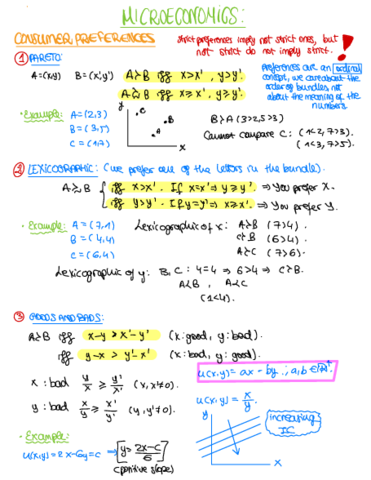 MICROECONOMICS:
CONSUMER PREFERENCES
Strict preferences imply not strict ones, but
not strict do not imply strict. !
① PARETO:
A=(x,y) B=(x',y') A≻B iff x>x', y>y'.
A≿B iff x≥x', y≥y'.
preferences are an ordinal
concept, we care about the
order of bundles not
about the meaning of the
numbers.
• Example: A=(2,3)
B=(3,5)
C=(1,7)
y
C
B
A
x
B≻A (3>2, 5>3)
Cannot compare C: (1<2, 7>3).
(1<3, 7>5).
② LEXICOGRAPHIC: (we prefer one of the letters in the bundle).
A≿B iff x>x'. If x=x' ⇒ y≥y'. ⇒ You prefer X.
iff y>y'. If y=y' ⇒ x≥x'. ⇒ You prefer Y.
• Example: A=(7,1) Lexicographic of x: A≻B (7>4).
B=(4,4) C≻B (6>4).
C=(6,4) A≻C (7>6).
Lexicographic of y: B, C: 4=4 ⇒ 6>4 ⇒ C≻B.
A≺B, A≺C
(1<4).
③ GOODS AND BADS:
A≻B iff x-y>x'-y' (x: good, y: bad).
iff y-x>y'-x' (x: bad, y: good).
u(x,y)=ax-by ; a,b∈ℝ⁺.
x: bad y/x ≥ y'/x' (x,x'≠0).
y: bad x/y ≥ x'/y' (y,y'≠0).
u(x,y)= x/y
y
increasing
IC
x
• Example:
u(x,y)=2x-6y=c ⇒ [y= 2x-c/6]
(positive slope)